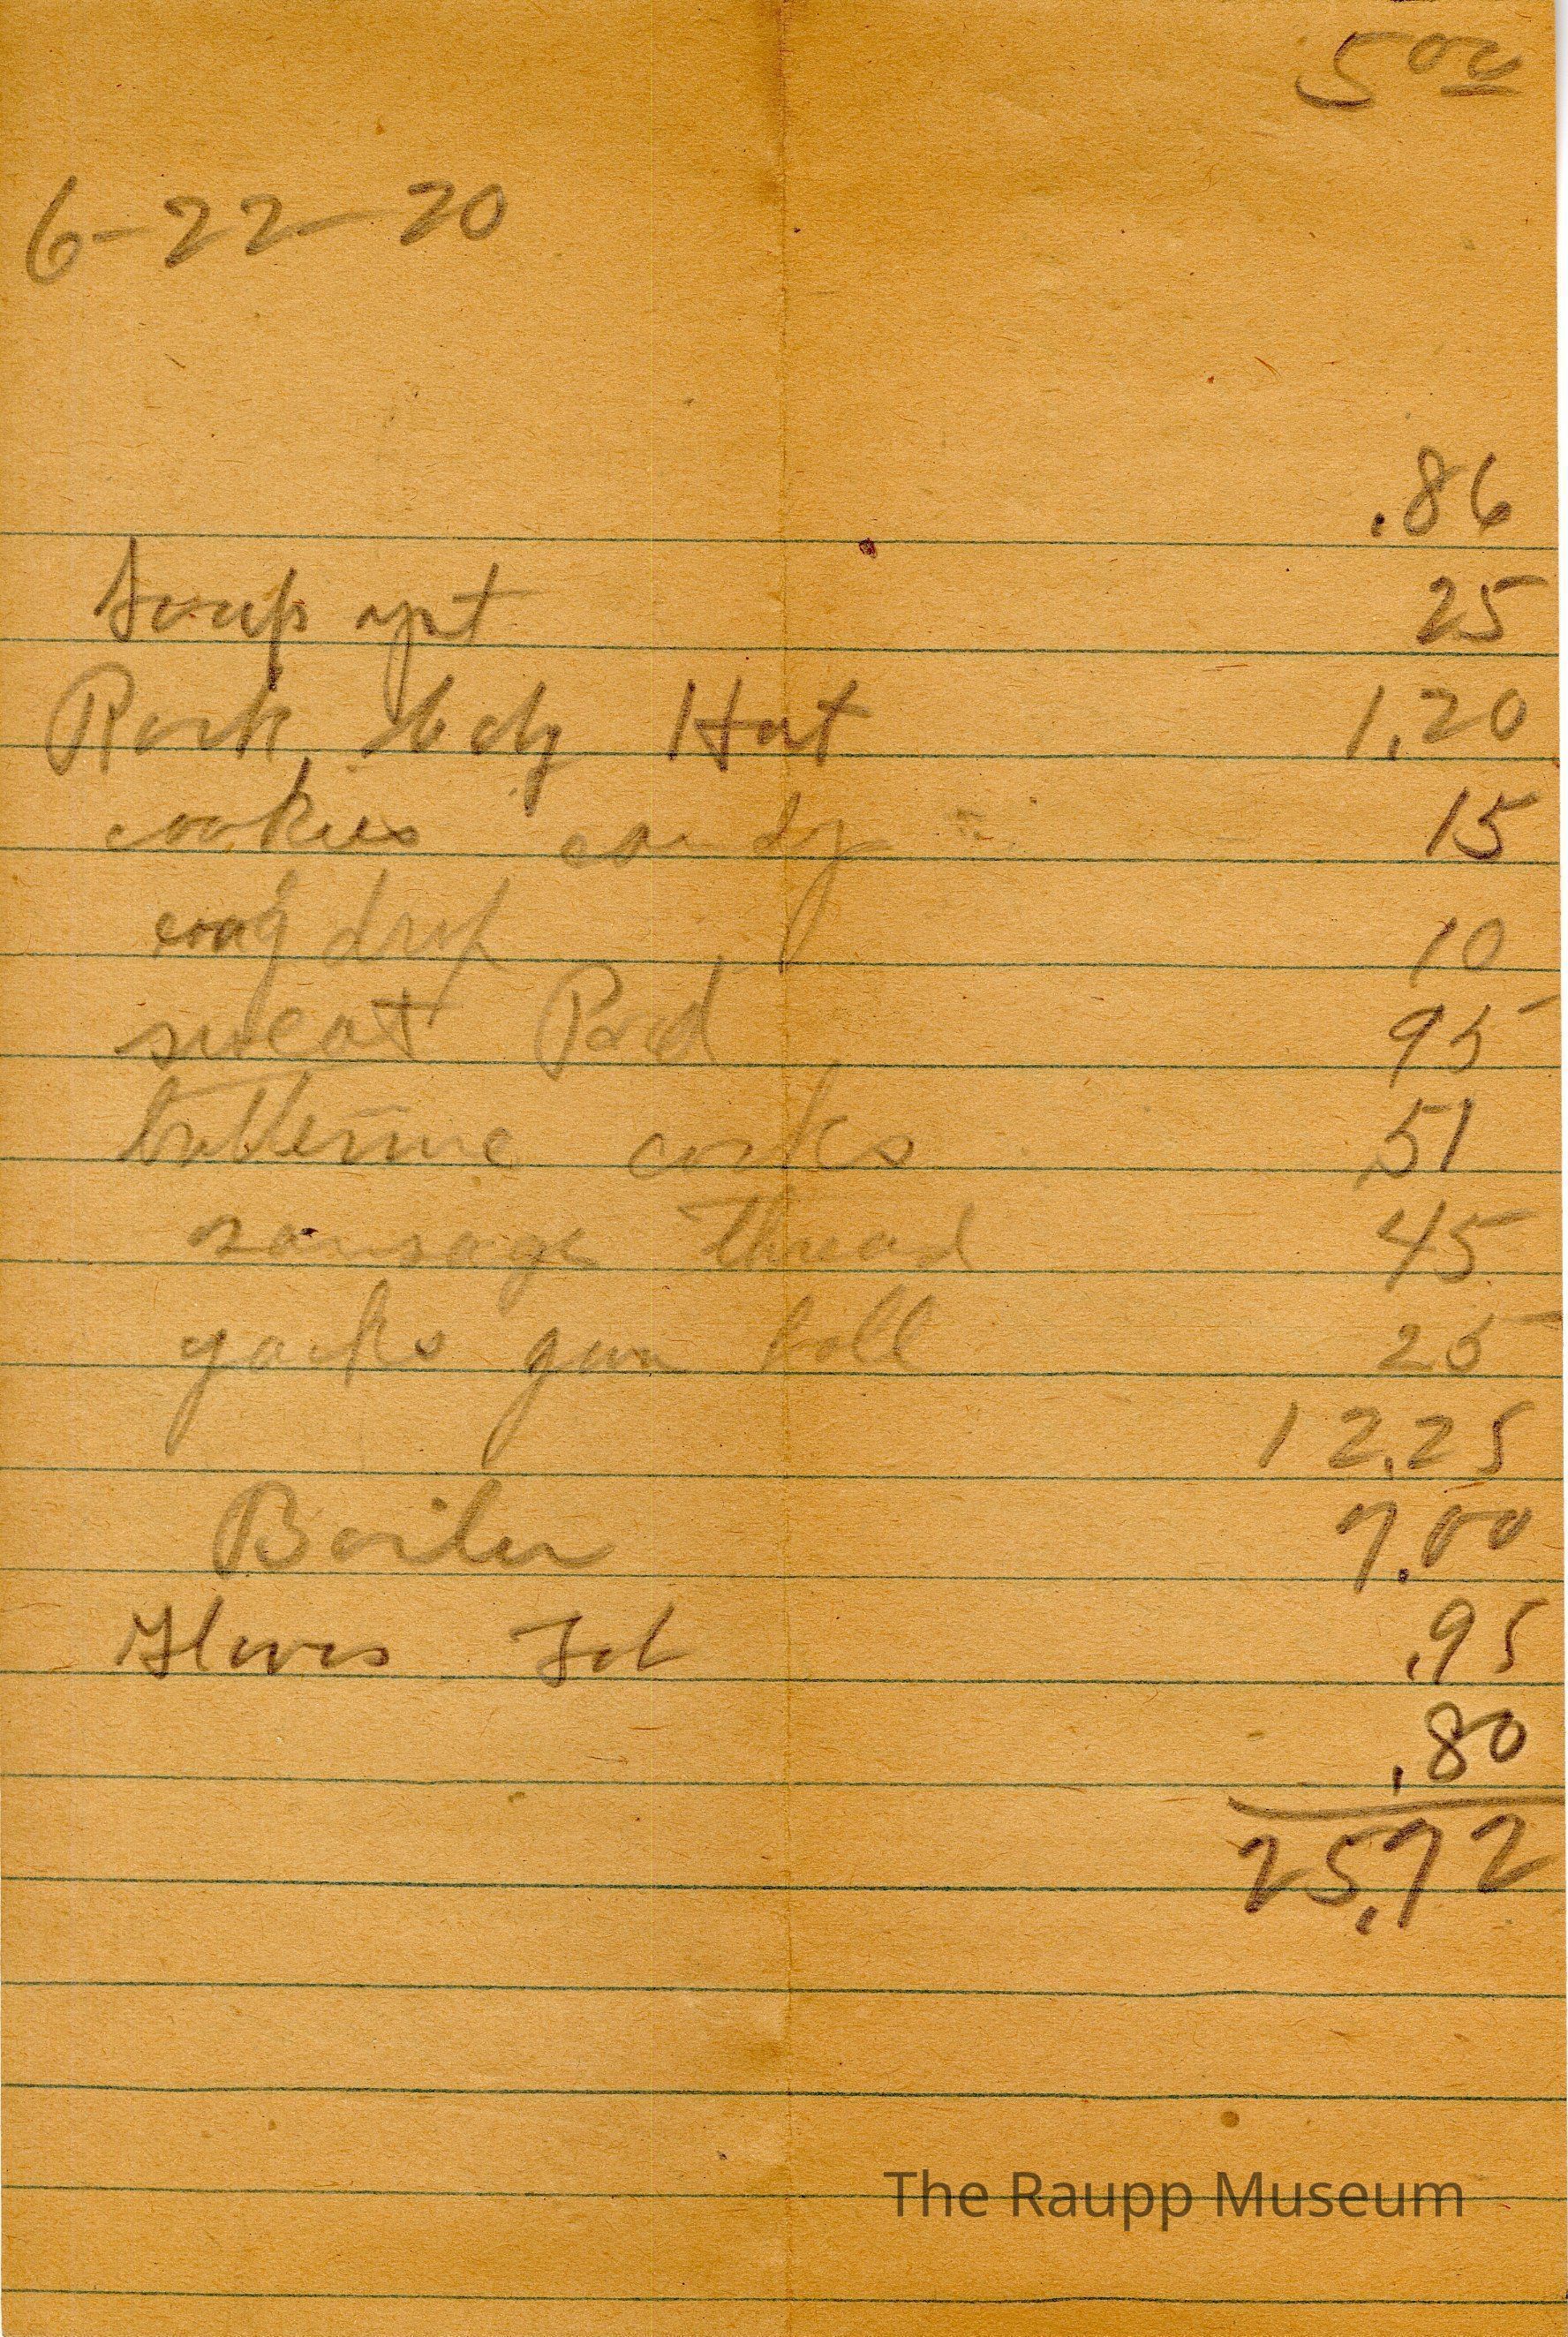 5 00
6-22-20
.86
Soap ypt 25
Rock bdy Hat 1.20
cookies candy 15
coug drop 10
sweat Pad 95
butterine corks 51
sausage thread 45
yacks gun boll 25
12.25
Boiler 7.00
Gloves Tob .95
.80
25.72
The Raupp Museum